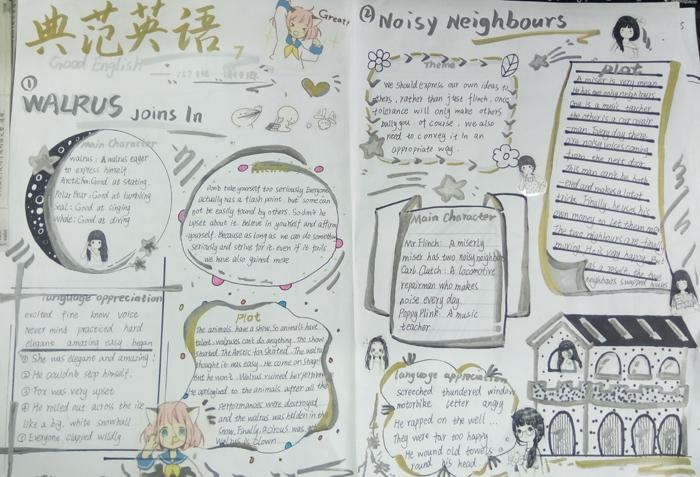 典范英语 7
Good English
Great!
①
WALRUS Joins In
Main Character
walrus: A walrus eager
to express himself
Arctic fox: Good at skating.
Polar Bear: Good at tumbling
Seal: Good at singing
Whale: Good at diving
Don't take yourself too seriously. Everyone
actually has a flash point. but some can
not be easily found by others. So don't be
upset about it. Believe in yourself and affirm
yourself. Because as long as we can do something
seriously and strive for it. even if it fails
we have also gained more
language appreciation
excited fine know voice
Never mind practiced hard
elegant amazing easy began
① She was elegant and amazing!
② He couldn't stop himself.
③ Fox was very upset
④ He rolled out across the ice
like a big, white snowball
⑤ Everyone clapped wildly
Plot
The animals have a show. So animals have
talent. walruses can't do anything. The show
started. The Arctic fox skated. The walrus
thought it was easy. He came on stage
But he won't. Walrus ruined her performance
He apologized to the animals after all the
performances were destroyed
and the walrus was hidden in the
snow. Finally, a circus was
walrus is clown
② Noisy Neighbours
Theme
We should express our own ideas to
others, rather than just flinch, once
tolerance will only make others
bully you. of course, we also
need to convey it in an
appropriate way.
Main Character
Mr. Flinch: A miserly
miser has two noisy neighbors
Carl Clutch: A locomotive
repairman who makes
noise every day.
Poppy Plink: A music
teacher
language appreciation
screeched thundered window
motorbike letter angry
He rapped on the well ...
They were far too happy.
He wound old towels
round his head.
Plot
A miser is very mean
He has two noisy neighbours
One is a music teacher
the other is a car repair
man. Every day there
are noisy voices coming
from the next door.
This man can't be both
and make a lot of
tricks. Finally, he uses his
own money to let them move
The two neighbours are
moving. He is very happy. But
as a result, the two
neighbours swap houses